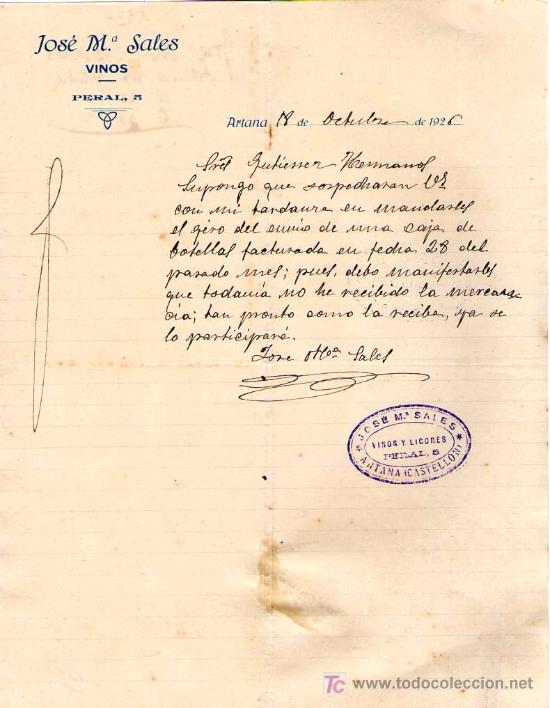 José M.ª Sales
VINOS
PERAL, 5
Artana 18 de Octubre de 1926
Sres Gutierrez Hermanos
Supongo que sospecharan Vs
con mi tardanza en mandarles
el giro del envio de una caja de
botellas facturada en fecha 28 del
pasado mes; pues debo manifestarles
que todavia no he recibido la mercan-
cia; tan pronto como la reciba, ya se
lo participaré.
Jose Mª Sales
JOSÉ M.ª SALES
VINOS Y LICORES
PERAL, 5
ARTANA (CASTELLÓN)
TC www.todocoleccion.net